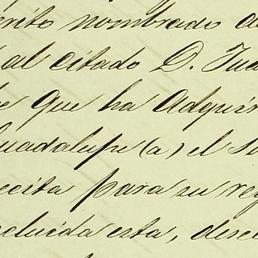 crito nombrado a
al citado D. Jua
e que ha adquiri
uadalupe (a) el S
ecita para su re
cluida esta, desc